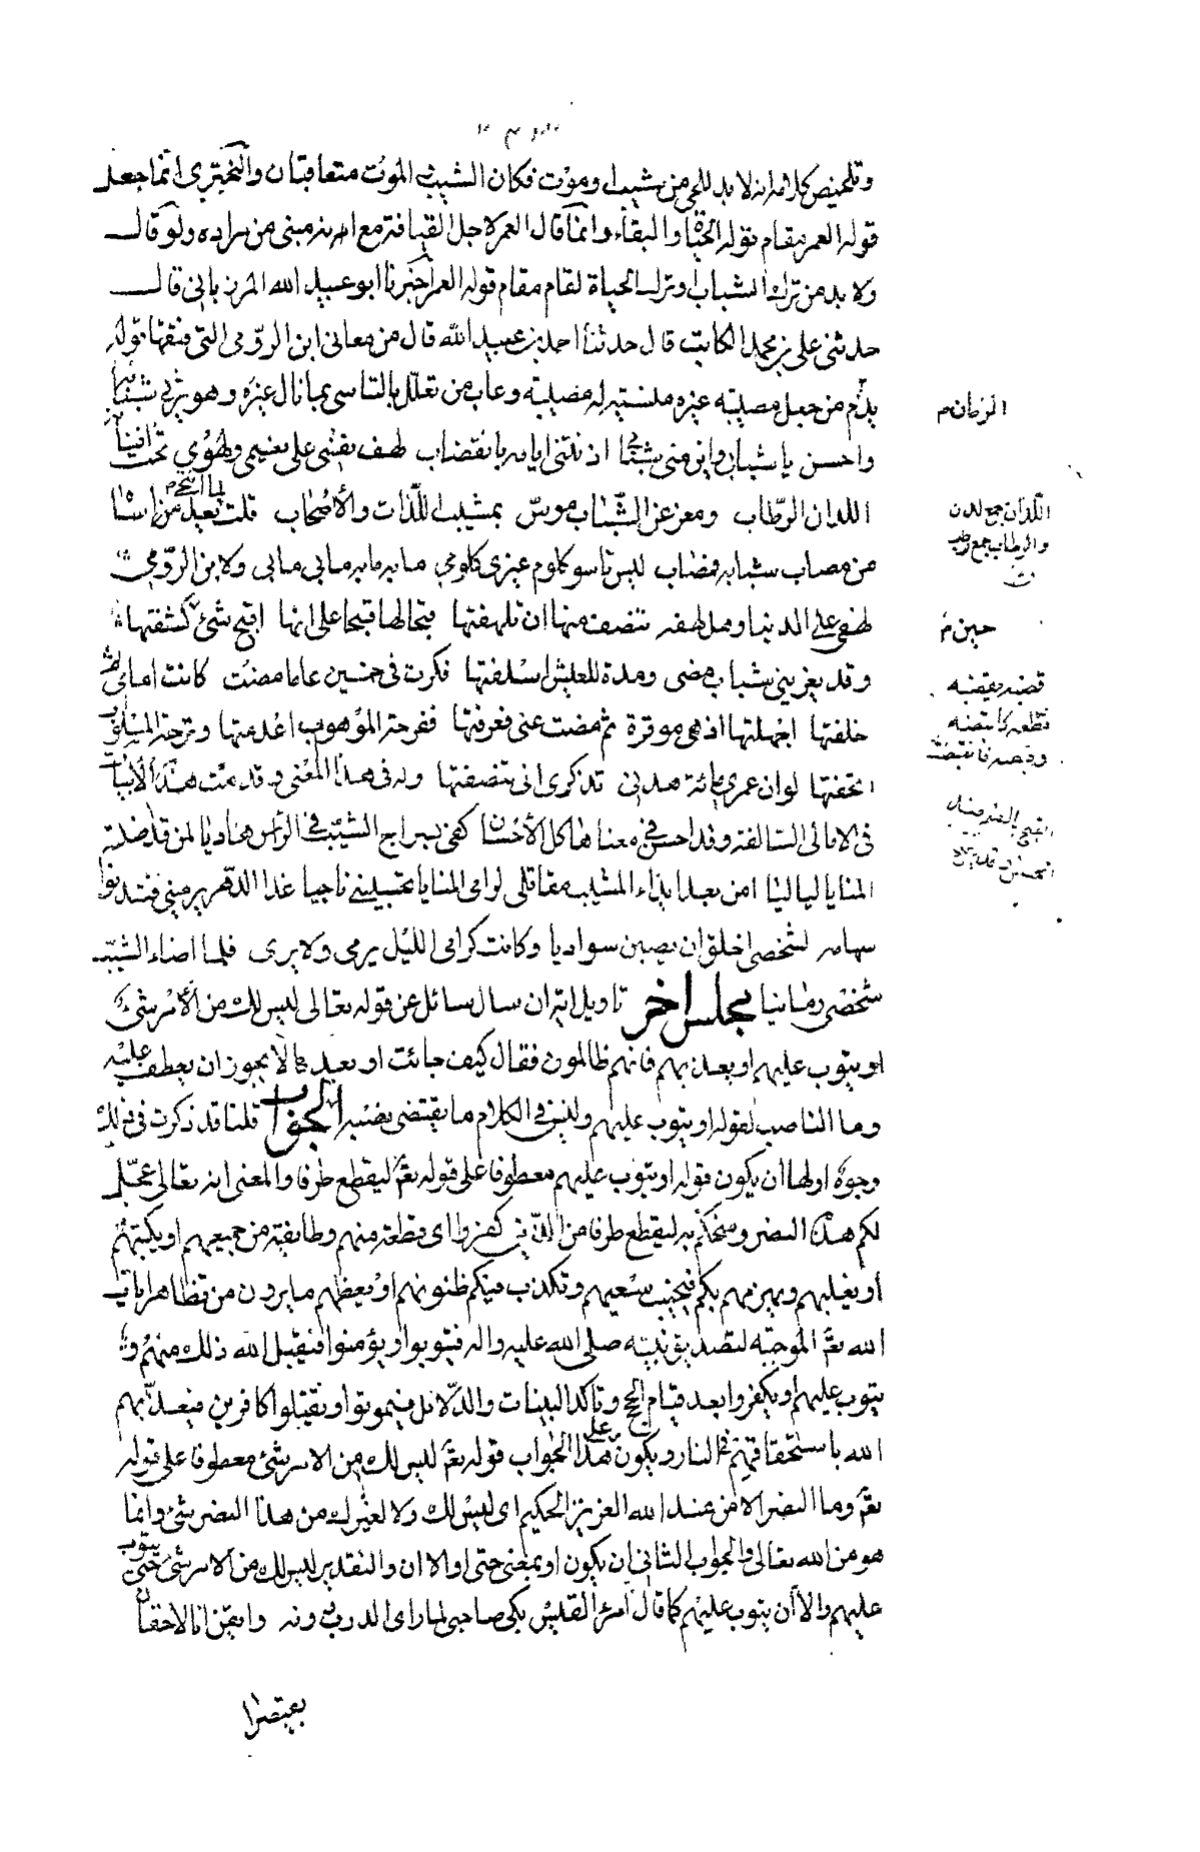 وتلخيص كلامه انه لا بد للحي من شيب او موت فكان الشيب والموت متعاقبان والبحتري انما جعل
قوله العمر مقام قوله الحياة والبقاء وانما قال العمر لاجل القافية مع انه مبني من مراده ولو قال
ولا بد من ترك الشباب او ترك الحياة لقام مقام قوله العمر اخبرنا ابو عبيد الله المرزباني قال
حدثني علي بن محمد الكاتب قال حدثنا احمد بن عبيد الله قال من معاني ابن الرومي التي فتقها قوله
يذم من جعل مصيبته غيره ملنسته له مصيبته وعاب من تعلل بالتاسي بما نال غيره وهو يرثي شبابه
واحسن يا شبابي واين مني شبابي اذنتني ايامه بانقضاب لهف نفسي على نعيمي ولهوي تحت افنانه
اللدان الرطاب ومعز عن الشباب موس بمشيب اللذات والأصحاب قلت لما انتحى بعد من اسا
من مصاب شبابه فمصاب ليس تاسو كلوم غيري كلومي ما به ما به وما بي ما بي ولابن الرومي
لهفي على الدنيا وهل لهفه تنصف منها ان تلهفتها قبحا لها قبحا على انها اقبح شيء كشفتها
وقد يعزيني شباب مضى ومدة للعيش اسلفتها فكرت في خمسين عاما مضت كانت امامي ثم
خلفتها اجهلتها اذ هي موقرة ثم مضت عني فعرفتها ففرحة الموهوب اعدمتها وترحة المسلوب
اتحفتها لو ان عمري مائة هدني تذكري اني تنصفتها وله في هذا المعنى وقد مت هذه الابيات
في الامالي السالفة وقد احسن في معناها كل الأحسان كفى بسراج الشيب في الرأس هاديا لمن قد اضلته
المنايا لياليا امن بعد ابداء المشيب مقاتلي لرامي المنايا تحسبيني ناجيا غدا الدهر يرميني فتدنوا
سهامه لشخصي اخلق ان يصبن سواديا وكانت كرامي الليل يرمي ولا يرى فلما اضاء الشيب
شخصي رمانيا مجلس اخر تاويل اية ان سال سائل عن قوله تعالى ليس لك من الأمر شيء
او يتوب عليهم او يعذبهم فانهم ظالمون فقال كيف جائت او بعد ما لا يجوز ان يعطف عليه
وما الناصب لقوله او يتوب عليهم وليس في الكلام ما يقتضى نصبه الجواب قلنا قد ذكرت في ذلك
وجوه اولها ان يكون قوله او يتوب عليهم معطوفا على قوله تعٓ ليقطع طرفا والمعنى انه تعالى عجل
لكم هذا النصر ومنحكم به ليقطع طرفا من الذين كفروا اى قطعة منهم وطايفة من جميعهم او يكبتهم
او يغلبهم ويهزمهم بكم فيخيب سعيهم وتكذب فيكم ظنونهم او يعظهم ما يرون من تظاهر ايات
الله تعٓ الموجبة لتصديق نبيه صلى الله عليه واله فيتوبوا ويؤمنوا فيقبل الله ذلك منهم و
يتوب عليهم او يكفروا بعد قيام الحجج وتاكد البينات والدلائل فيموتوا او يقتلوا كافرين فيعذبهم
الله باستحقاقهم في النار ويكون على هذا الجواب قوله تعٓ ليس لك من الامر شئ معطوفا على قوله
تعٓ وما النصر الا من عند الله العزيز الحكيم اى ليس لك ولا لغيرك من هذا النصر شئ وانما
هو من الله تعالى والجواب الثاني ان يكون او بمعنى حتى او الا ان والتقدير ليس لك من الامر شئ حتى يتوب
عليهم والا أن يتوب عليهم كما قال امرؤ القيس بكى صاحبي لما راى الدرب دونه وايقن انا لاحقان
بقيصرا
الزمان م
اللدان جمع لدن
والرطاب جمع رطب
حين م
قضبه يقضبه
قطعه كاقتضبه